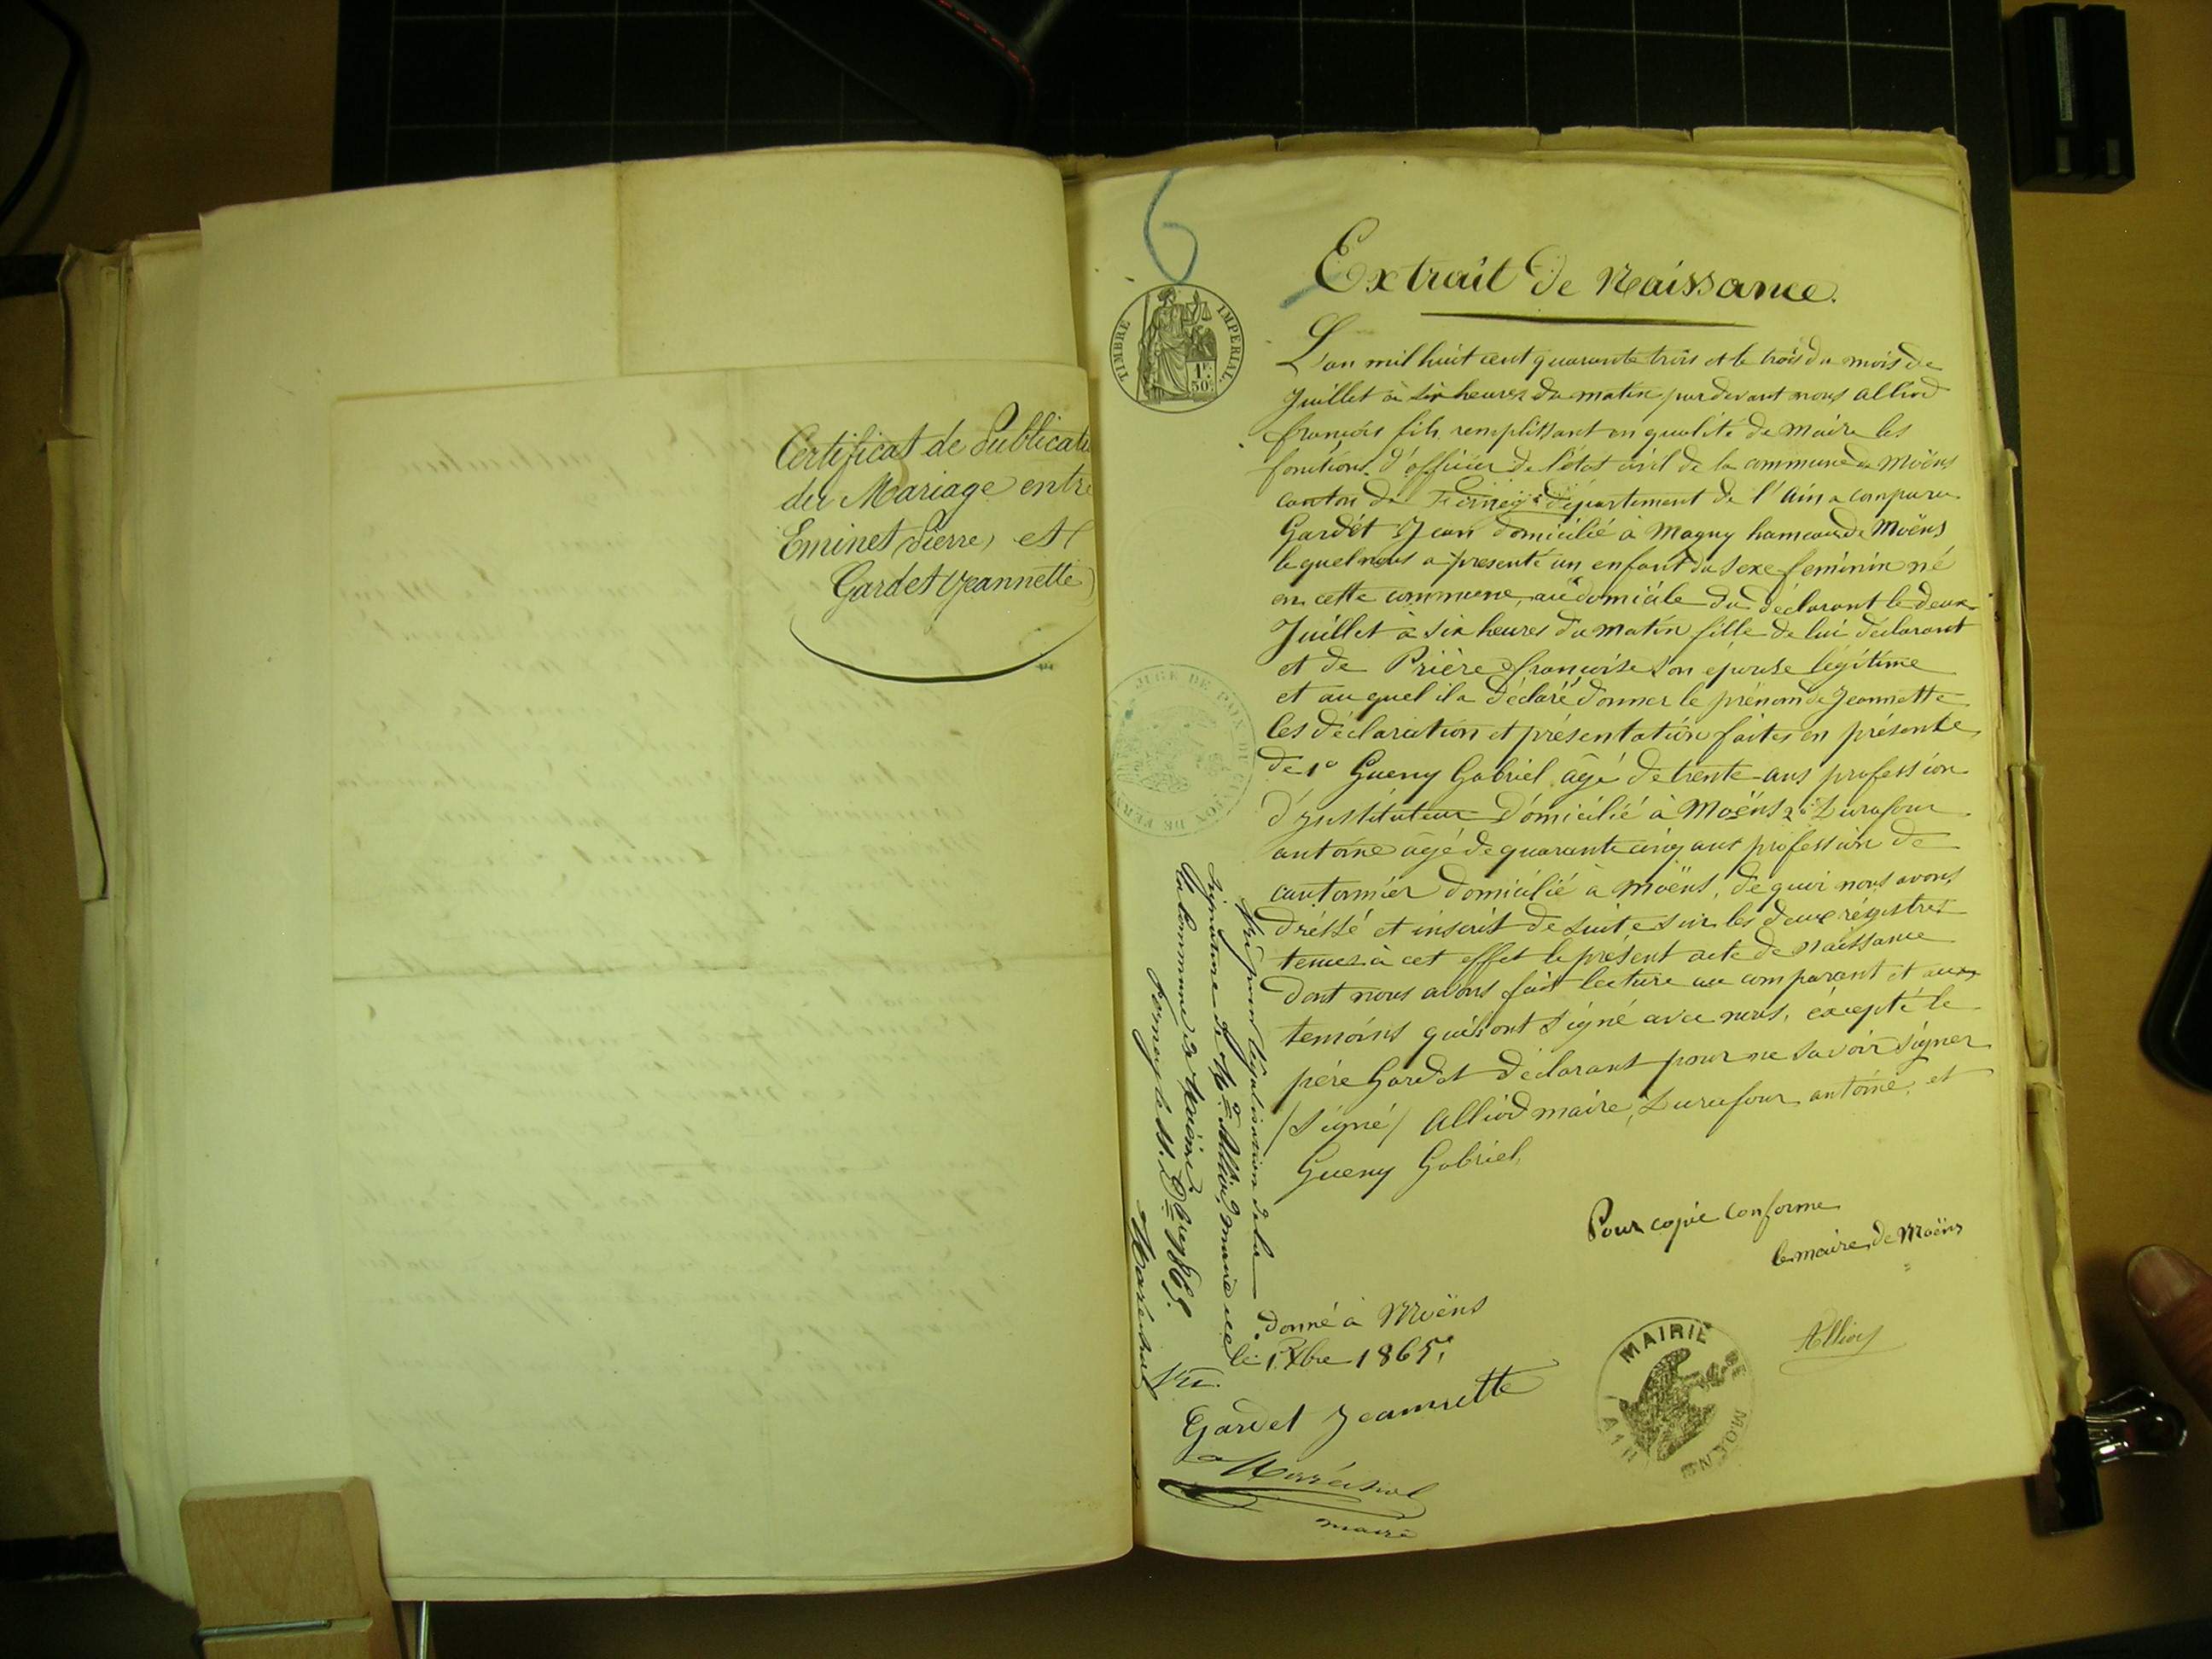 Certificat de Publicati
du Mariage entre
Eminet (Pierre) et
Gardet (Jeannette)
6
TIMBRE IMPERIAL
1F.
50C.
Extrait de Naissance.
L'an mil huit cent quarante trois et le trois du mois de
Juillet à six heures du matin pardevant nous Alliod
françois fils, remplissant en qualité de Maire les
fonctions d'officier de l'état civil de la commune de Moëns
canton de Ferney département de l'Ain a comparu
Gardet Jean domicilié à Magny hameau de Moëns
lequel nous a présenté un enfant du sexe feminin né
en cette commune, au domicile du déclarant le deux
Juillet à six heures du matin fille de lui déclarant
et de Prière françoise son épouse légitime
et au quel il a déclaré donner le prénom de Jeannette
les déclaration et présentation faites en présence
de 1° Gueny Gabriel âgé de trente ans profession
d'Instituteur domicilié à Moëns 2° Durafour
antoine âgé de quarante cinq ans profession de
cantonnier domicilié à Moëns, de quoi nous avons
dréssé et inscrit de suite sur les deux régistres
tenus à cet effet le présent acte de naissance
dont nous avons fait lecture au comparant et aux
temoins qui ont signé avec nous, éxcepté le
père Gardet déclarant pour ne savoir signer
(signé) Alliod maire, Durafour antoine, et
Gueny Gabriel,
Pour copie conforme
le maire de Moëns
Alliod
donné à Moëns
le 1 Xbre 1865,
Vu
Gardet Jeannette
Maréchal
maire
MAIRIE DE MOENS
(AIN)
JUGE DE PAIX DU CANTON DE FERNEY
Vu pour légalisation de la
signature de Mr Alliod, maire de
la commune de Moëns.
Ferney le 11. Xbre 1865.